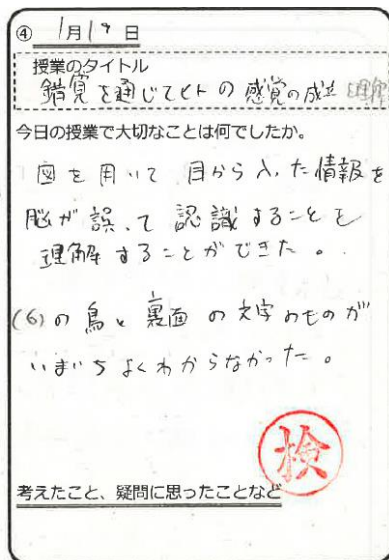 ④ 1月19日
授業のタイトル
錯覚を通じてヒトの感覚の成立 理解
今日の授業で大切なことは何でしたか。
図を用いて 目から入った情報を
脳が誤って 認識することを
理解することができた。
(6)の鳥と裏面の文字のものが
いまいちよくわからなかった。
検
考えたこと、疑問に思ったことなど